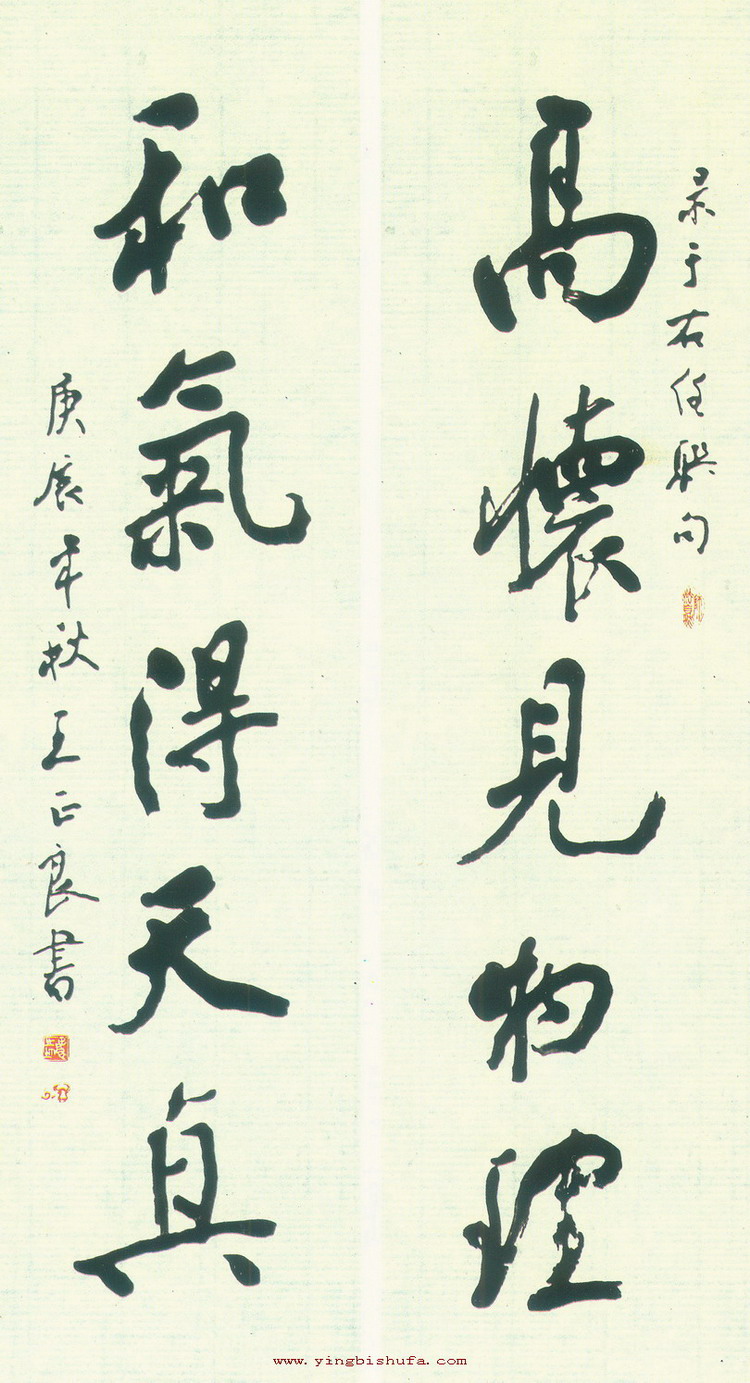 录于右任联句
高懷見物理
和氣得天真
庚辰年秋王正良书
www.yingbishufa.com